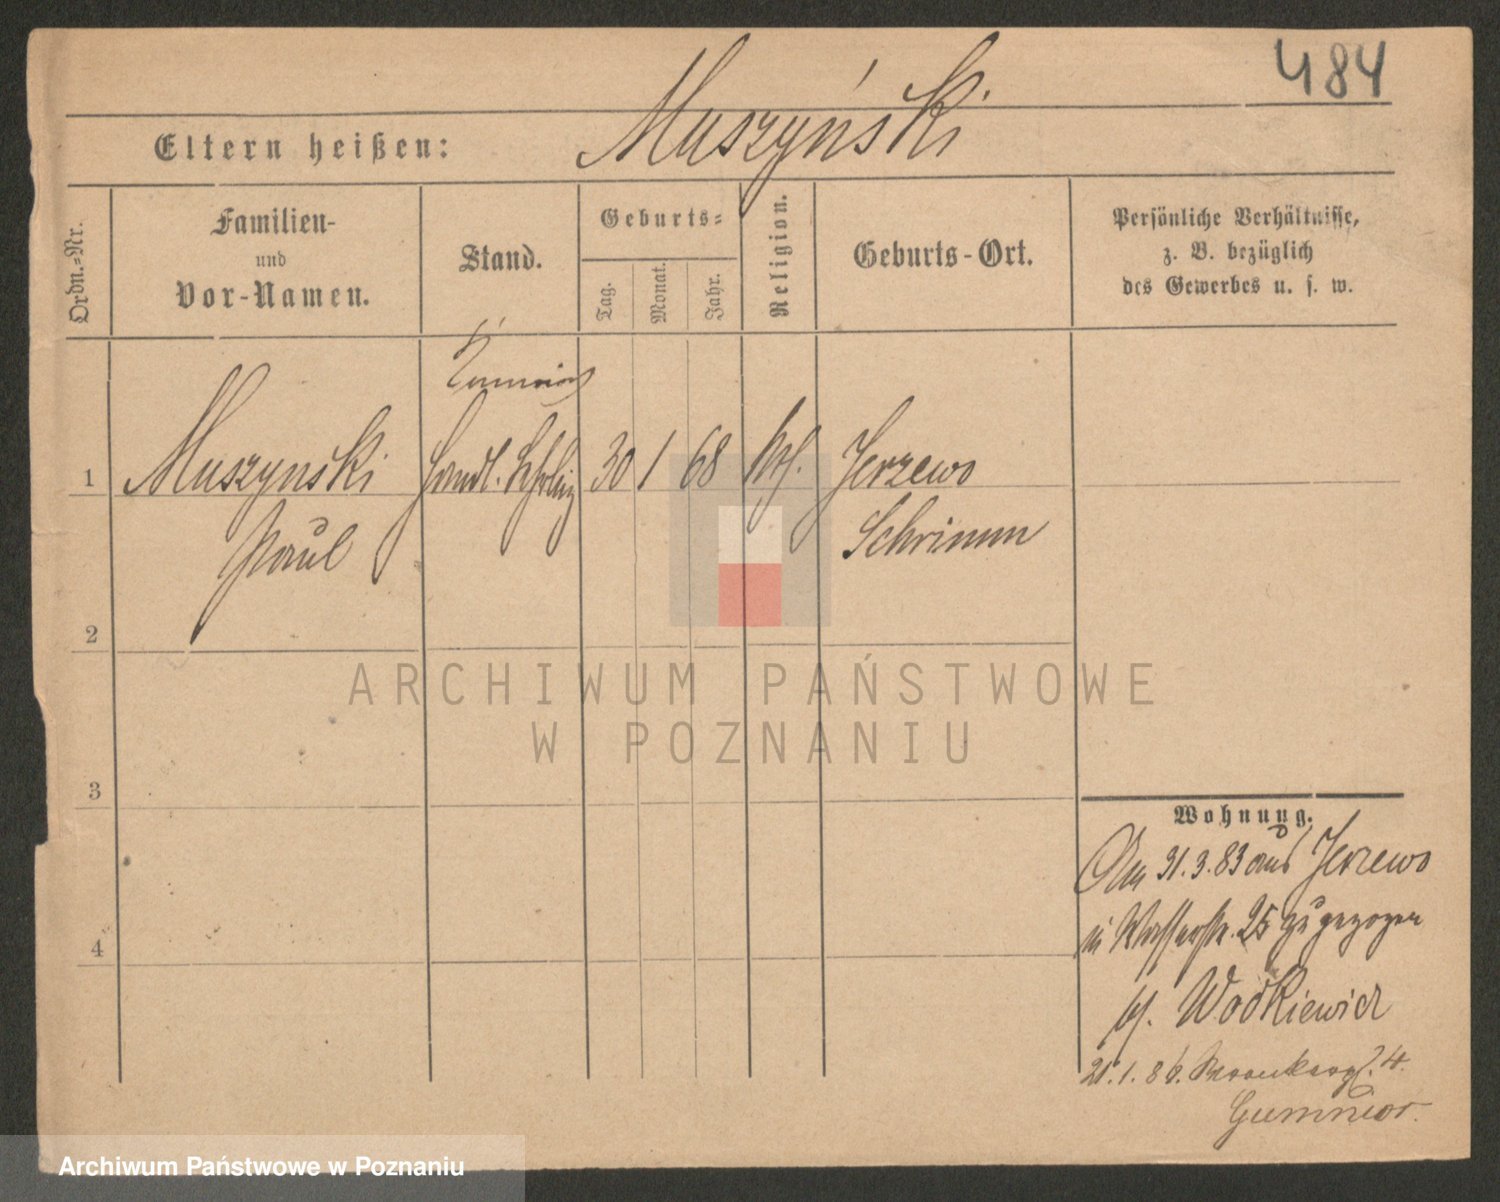 484
Eltern heißen: Muszyński
Ordn.-Nr.
Familien-
und
Vor-Namen.
Stand.
Geburts-
Tag.
Monat.
Jahr.
Religion.
Geburts-Ort.
Persönliche Verhältnisse,
z. B. bezüglich
des Gewerbes u. s. w.
1 Muszynski Handl. 30 1 68 Jerzewo
Paul Schrimm
2
ARCHIWUM PAŃSTWOWE
W POZNANIU
3
Wohnung.
Am 31.3.83 aus Jerzewo
in Wasserstr. 25 zugezogen
4
bf. Wodkiewicz
21.1.86. 4.
Archiwum Państwowe w Poznaniu